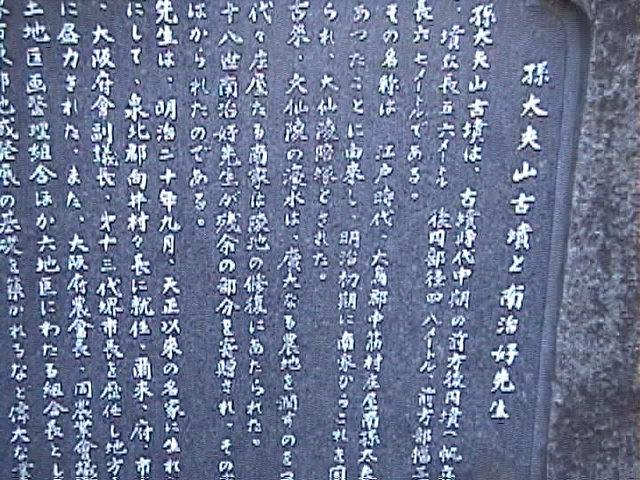 孫太夫山古墳と南治好先生
孫太夫山古墳は、古墳時代中期の前方後円墳
墳丘長五六メートル 後円部径四八メートル 前方部幅三
長六七メートルである。
その名称は 江戸時代、大鳥郡中筋村庄屋南孫太夫
あったことに由来し、明治初期に南家からこれを国
られ、大仙陵陪塚とされた。
古来、大仙陵の濠水は、広大なる農地を潤すのを
代々庄屋たる南家は陵池の修復にあたられた。
十八世南治好先生が残余の部分を寄贈され、その
はかられたのである。
先生は、明治二十年九月、天正以来の名家に生れ
にして、泉北郡向井村々長に就任、爾来、府、市
、大阪府會副議長、第十三代堺市長を歴任し地方
に尽力された。また、大阪府農會長、同農業會議
土地区画整理組合ほか六地区にわたる組合長とし
地域発展の基礎を築かれるなど偉大な業